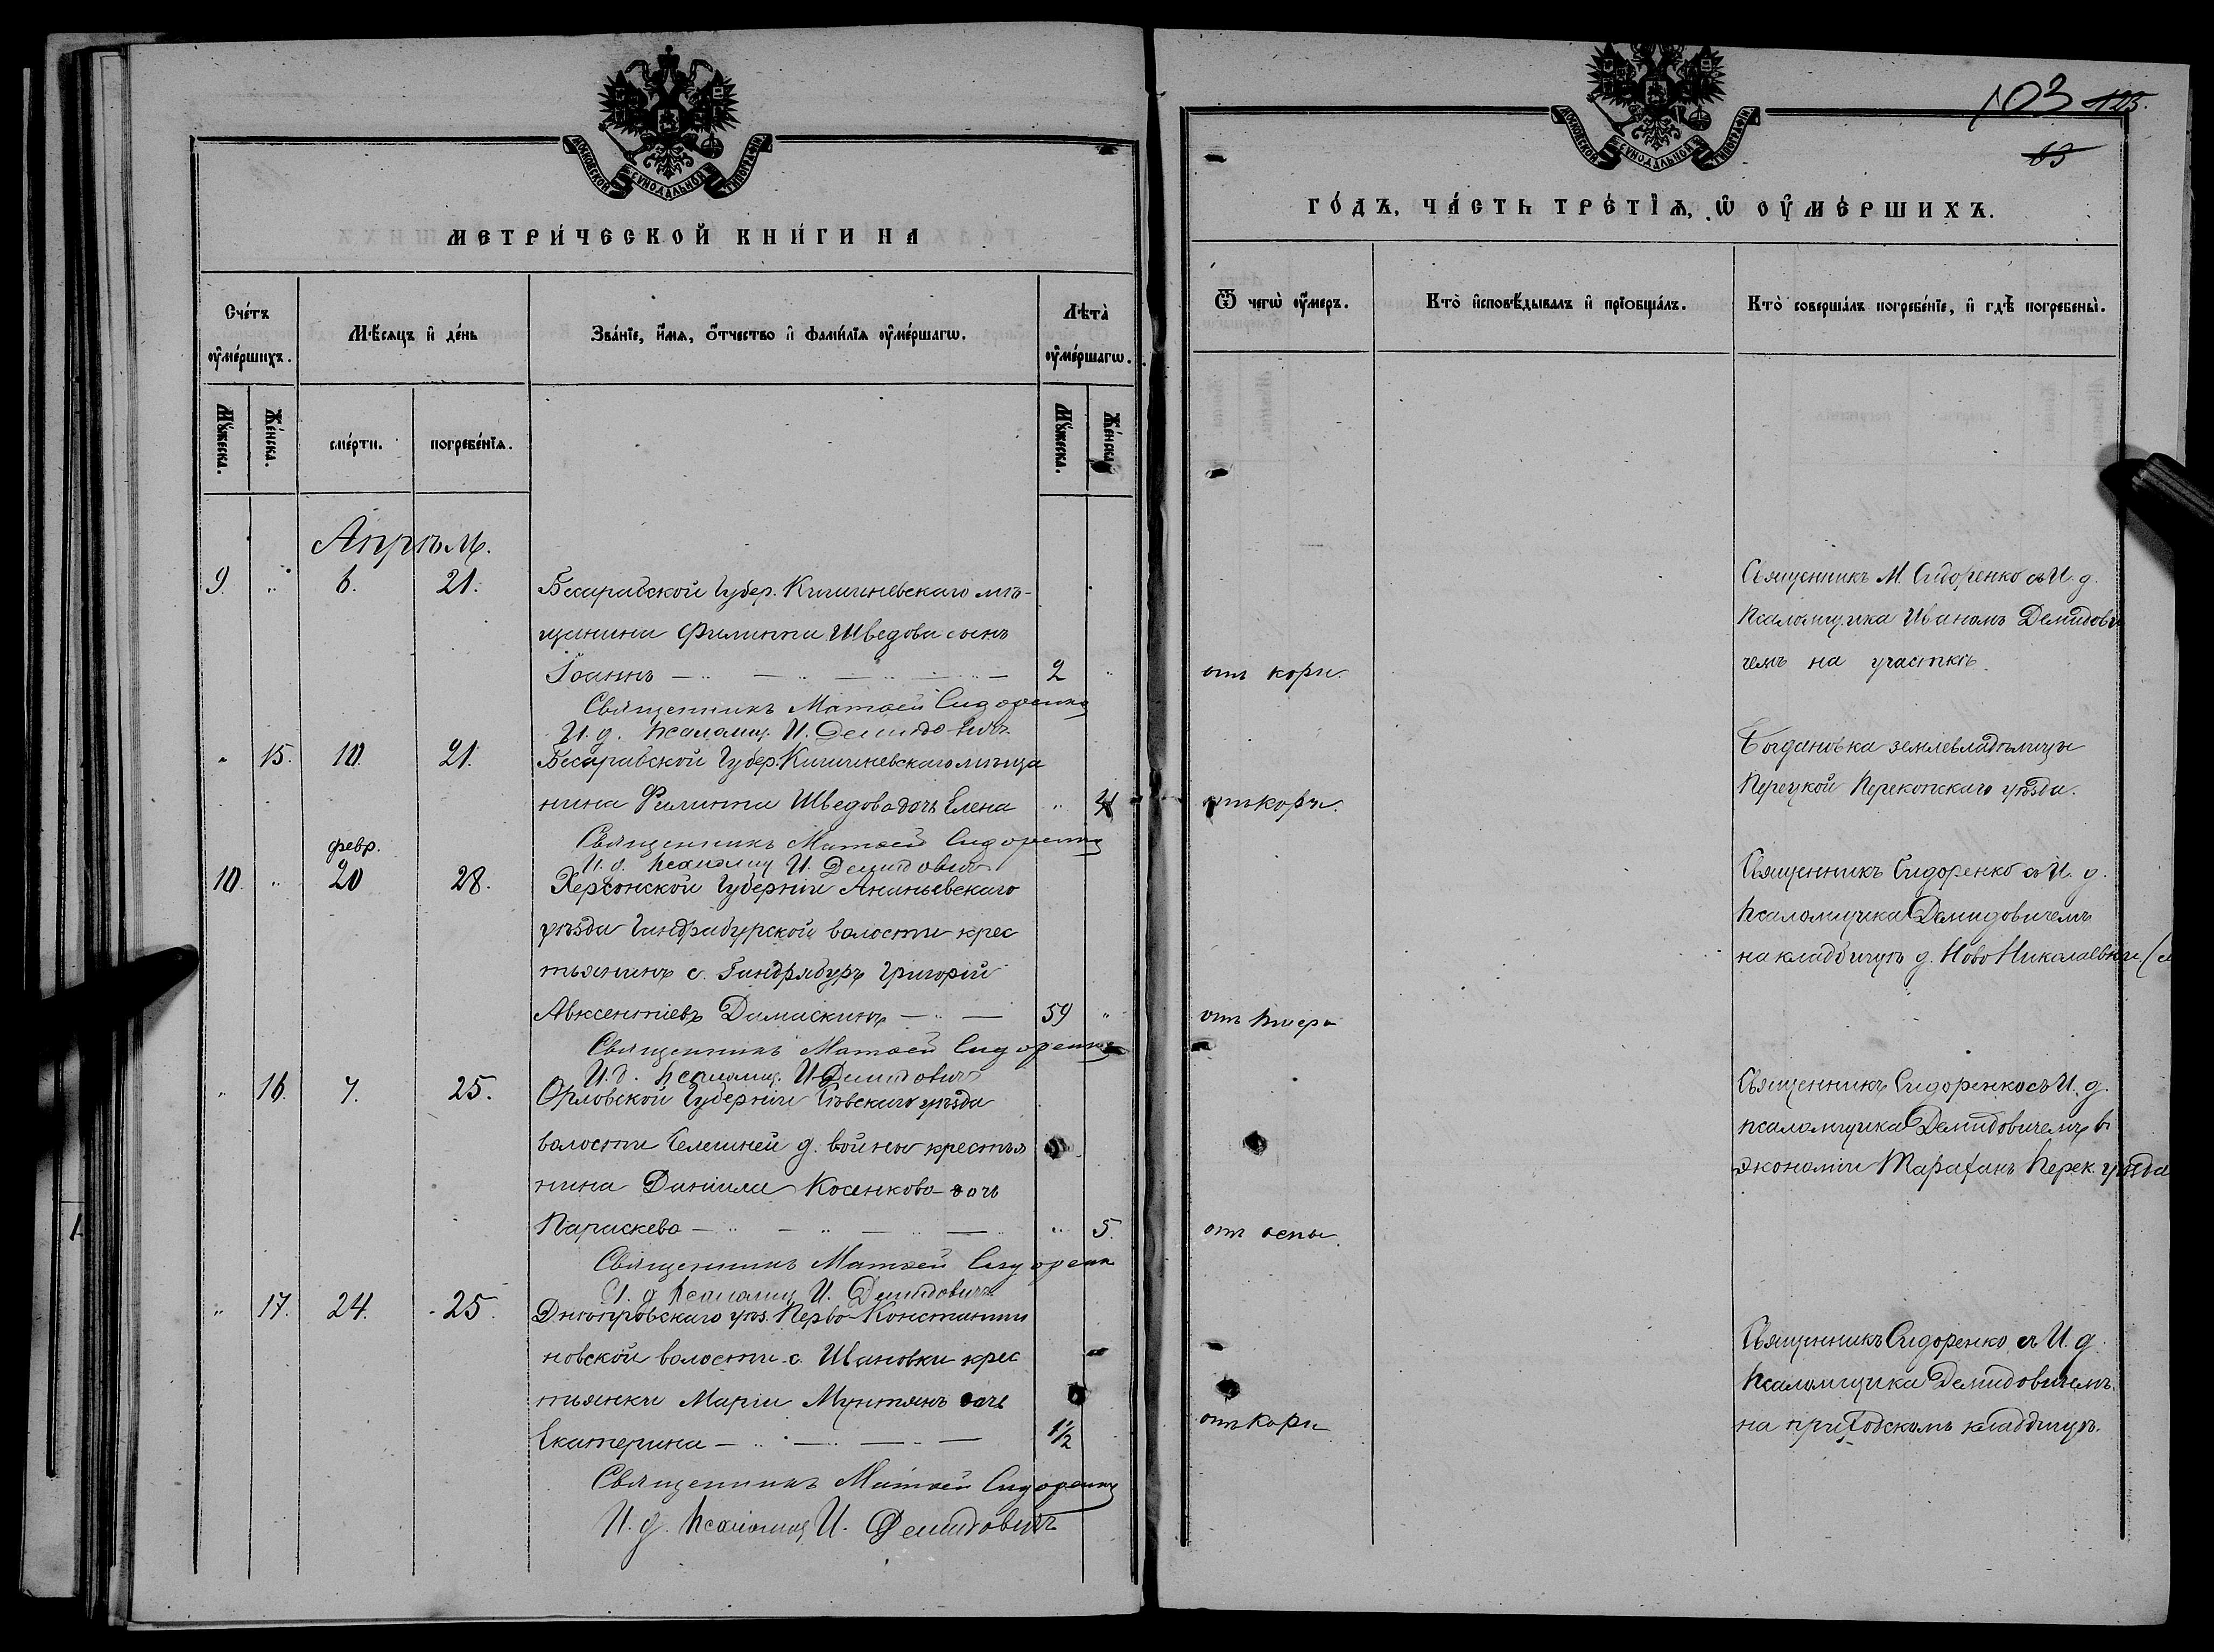 МОСКОВСКОЙ СѴНОДАЛЬНОЙ ТИПОГРАФІИ
МЕТРИ́ЧЕСКОЙ КНИ́ГИ НА
Сче́тъ ᲂу҆ме́ршихъ.
Мѣ́сяцъ и҆ де́нь
Зва́нїе, и҆́мѧ, ѻ҆́тчество и҆ фами́лїѧ ᲂу҆ме́ршагѡ.
Лѣта̀ ᲂу҆ме́ршагѡ.
Мꙋ́жеска.
Же́нска.
сме́рти.
погребе́нїѧ.
Мꙋ́жеска.
Же́нска.
Апрѣль.
9. „ 6. 21. Бесарабской Губер. Кишиневскаго мѣ-
щанина Филиппа Шведова сынъ
Іоаннъ 2 „
Священникъ Матѳей Сидоренко
И. д. псаломщ. И. Демидовичъ
„ 15. 10. 21. Бесарабской Губер. Кишиневскаго мѣща
нина Филиппа Шведова дочь Елена „
Священникъ Матѳей Сидоренко
И. д. псаломщ И. Демидовичъ
февр.
10. „ 20 28. Херсонской Губерніи Ананьевскаго
уѣзда Гандрабурской волости крес
тьянинъ с. Гандрабуръ Григорій
Авксентіевъ Дамаскинъ 59 „
Священникъ Матѳей Сидоренко
И. д. псаломщ. И. Демидовичъ
„ 16. 7. 25. Орловской Губерніи Сѣвскаго уѣзда
волости д. Войны крестья
нина Даніила Косенкова дочь
Параскева „ 5.
Священникъ Матѳей Сидоренк
И. д псаломщ И. Демидовичъ
„ 17. 24. 25. Днѣпровскаго уѣз. Перво-Константи
новской волости с. Ивановки крес
тьянки Маріи Мунтянъ дочь
Екатерина 1½
Священникъ Матѳей Сидоренко
И. д. псаломщ И. Демидовичъ
103 125.
63
МОСКОВСКОЙ СѴНОДАЛЬНОЙ ТИПОГРАФІИ
ГО́ДЪ, ЧА́СТЬ ТРЕ́ТЇѦ, Ѡ҆ ОУ҆МЕ́РШИХЪ.
Ѿ чегѡ̀ ᲂу҆́меръ.
Кто̀ и҆сповѣ́дывалъ и҆ прїобща́лъ.
Кто̀ соверша́лъ погребе́нїе, и҆ гдѣ̀ погребены̀.
Священникъ М. Сидоренко съ И. д.
псаломщика Иваномъ Демидови
чемъ на участкѣ
отъ кори.
Богдановка землевладѣлицы
Перецкой Перекопскаго уѣзда.
отъ кори.
Священникъ Сидоренко съ И. д.
псаломщика Демидовичемъ
на кладбищѣ д. Ново Николаевки
отъ
Священникъ Сидоренко съ И. д.
псаломщика Демидовичемъ въ
экономіи Тараханъ Перек. уѣзда
отъ оспы.
Священникъ Сидоренко съ И. д.
псаломщика Демидовичемъ.
на приходскомъ кладбищѣ.
отъ кори